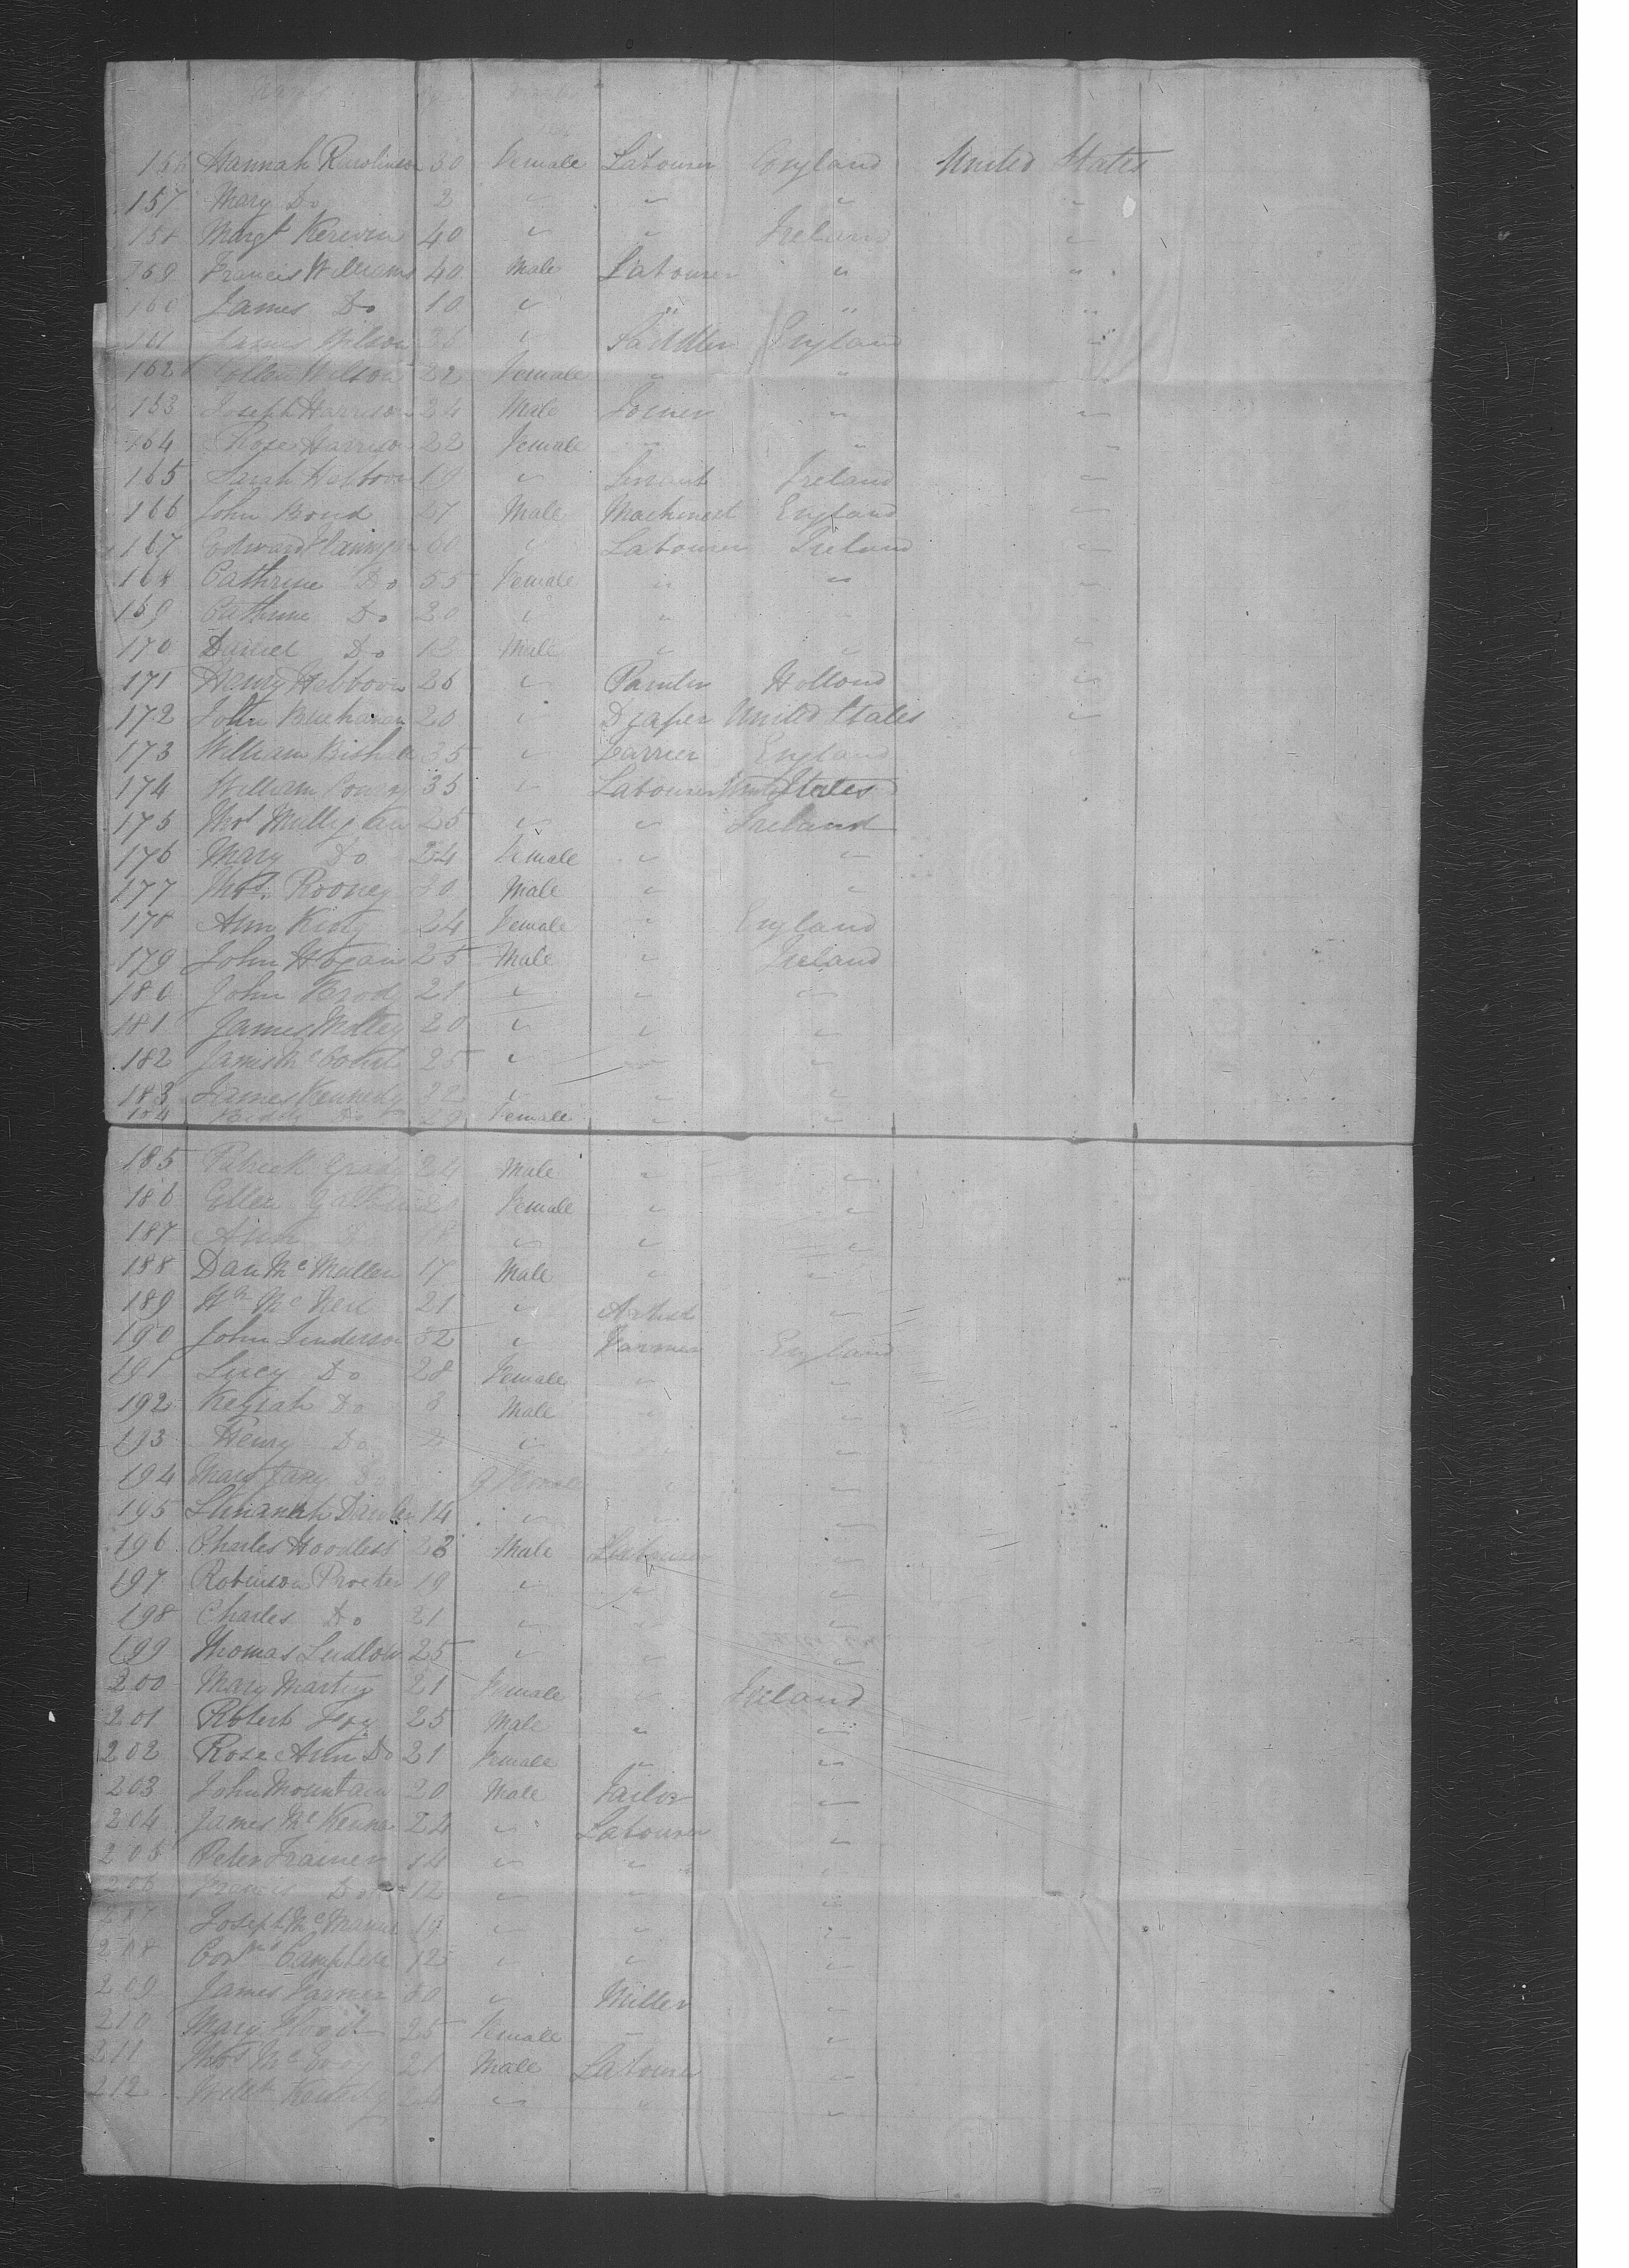 156 Hannah Rawlinson 30 Female Labourer England United States
157 Mary Do 2 " " " "
158 Margt Kerevin 40 " " Ireland "
159 Francis Williams 40 Male Labourer " "
160 James Do 10 " " " "
161 James Wilson 26 " Saddler England "
162 Ellen Wilson 22 Female " " "
163 Joseph Harrison 24 Male Joiner " "
164 Rose Harrison 22 Female " " "
165 Sarah 19 " Servant Ireland "
166 John Boyd 27 Male Machinest England "
167 Edward 60 " Labourer Ireland "
168 Cathrine Do 55 Female " " "
169 Cathrine Do 20 " " " "
170 Daniel Do 13 Male " " "
171 Henry Hebboon 26 " Painter Holland "
172 John Buchanan 20 " Draper United States "
173 William 35 " Carrier England
174 William 35 " Labourer United States
175 Thos Mulligan 25 " " Ireland
176 Mary Do 24 Female " "
177 Thos Rooney 20 Male " "
178 Ann King 24 Female " England
179 John Hogan 25 Male " Ireland
180 John Brody 21 " " "
181 James Molley 20 " " "
182 James McCourt 25 " " "
183 James Kennedy 32 " " "
184 Biddy Do 29 Female " "
185 Patrick Grady 24 Male " "
186 Ellen 20 Female " "
187 Ann Do 18 " " "
188 Dan McMullen 17 Male " "
189 Wm McNeil 21 " Artist "
190 John Senderson 32 " Farmer England
191 Lucy Do 28 Female " "
192 Keziah Do 3 Male " "
193 Henry Do 2 " " "
194 Mary Jane Do 9 Female " "
195 14 " " "
196 Charles Hoodless 23 Male Labourer "
197 Robinson Procter 19 " " "
198 Charles Do 21 " " "
199 Thomas Ludlow 25 " " "
200 Mary Martin 21 Female " Ireland
201 Robert Foy 25 Male " "
202 Rose Ann Do 21 Female " "
203 John Mountain 20 Male Tailor "
204 James McKenna 24 " Labourer "
205 Peter Trainer 14 " " "
206 Francis Do 12 " " "
207 Joseph McManus 19 " " "
208 Campbell 12 " " "
209 James Farmer 50 " Miller "
210 Mary 25 Female " "
211 Thos McEvoy 21 Male Labourer "
212 Willm Kennedy 24 " " "